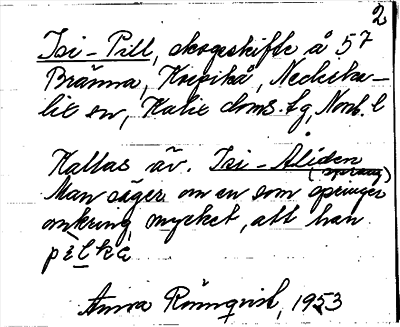 2
Isi-Pill, skogsskifte å 57
Bränna, Korpikå, Nederka-
lix sn, Kalix doms. tg, Norrb. l
Kallas äv. Isi-Åliden
(sprang)
Man säger om en som springer
omkring mycket, att han
pilka
Anna Rönnqvist, 1953